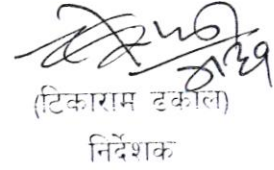 (टिकाराम ढकाल)
निर्देशक